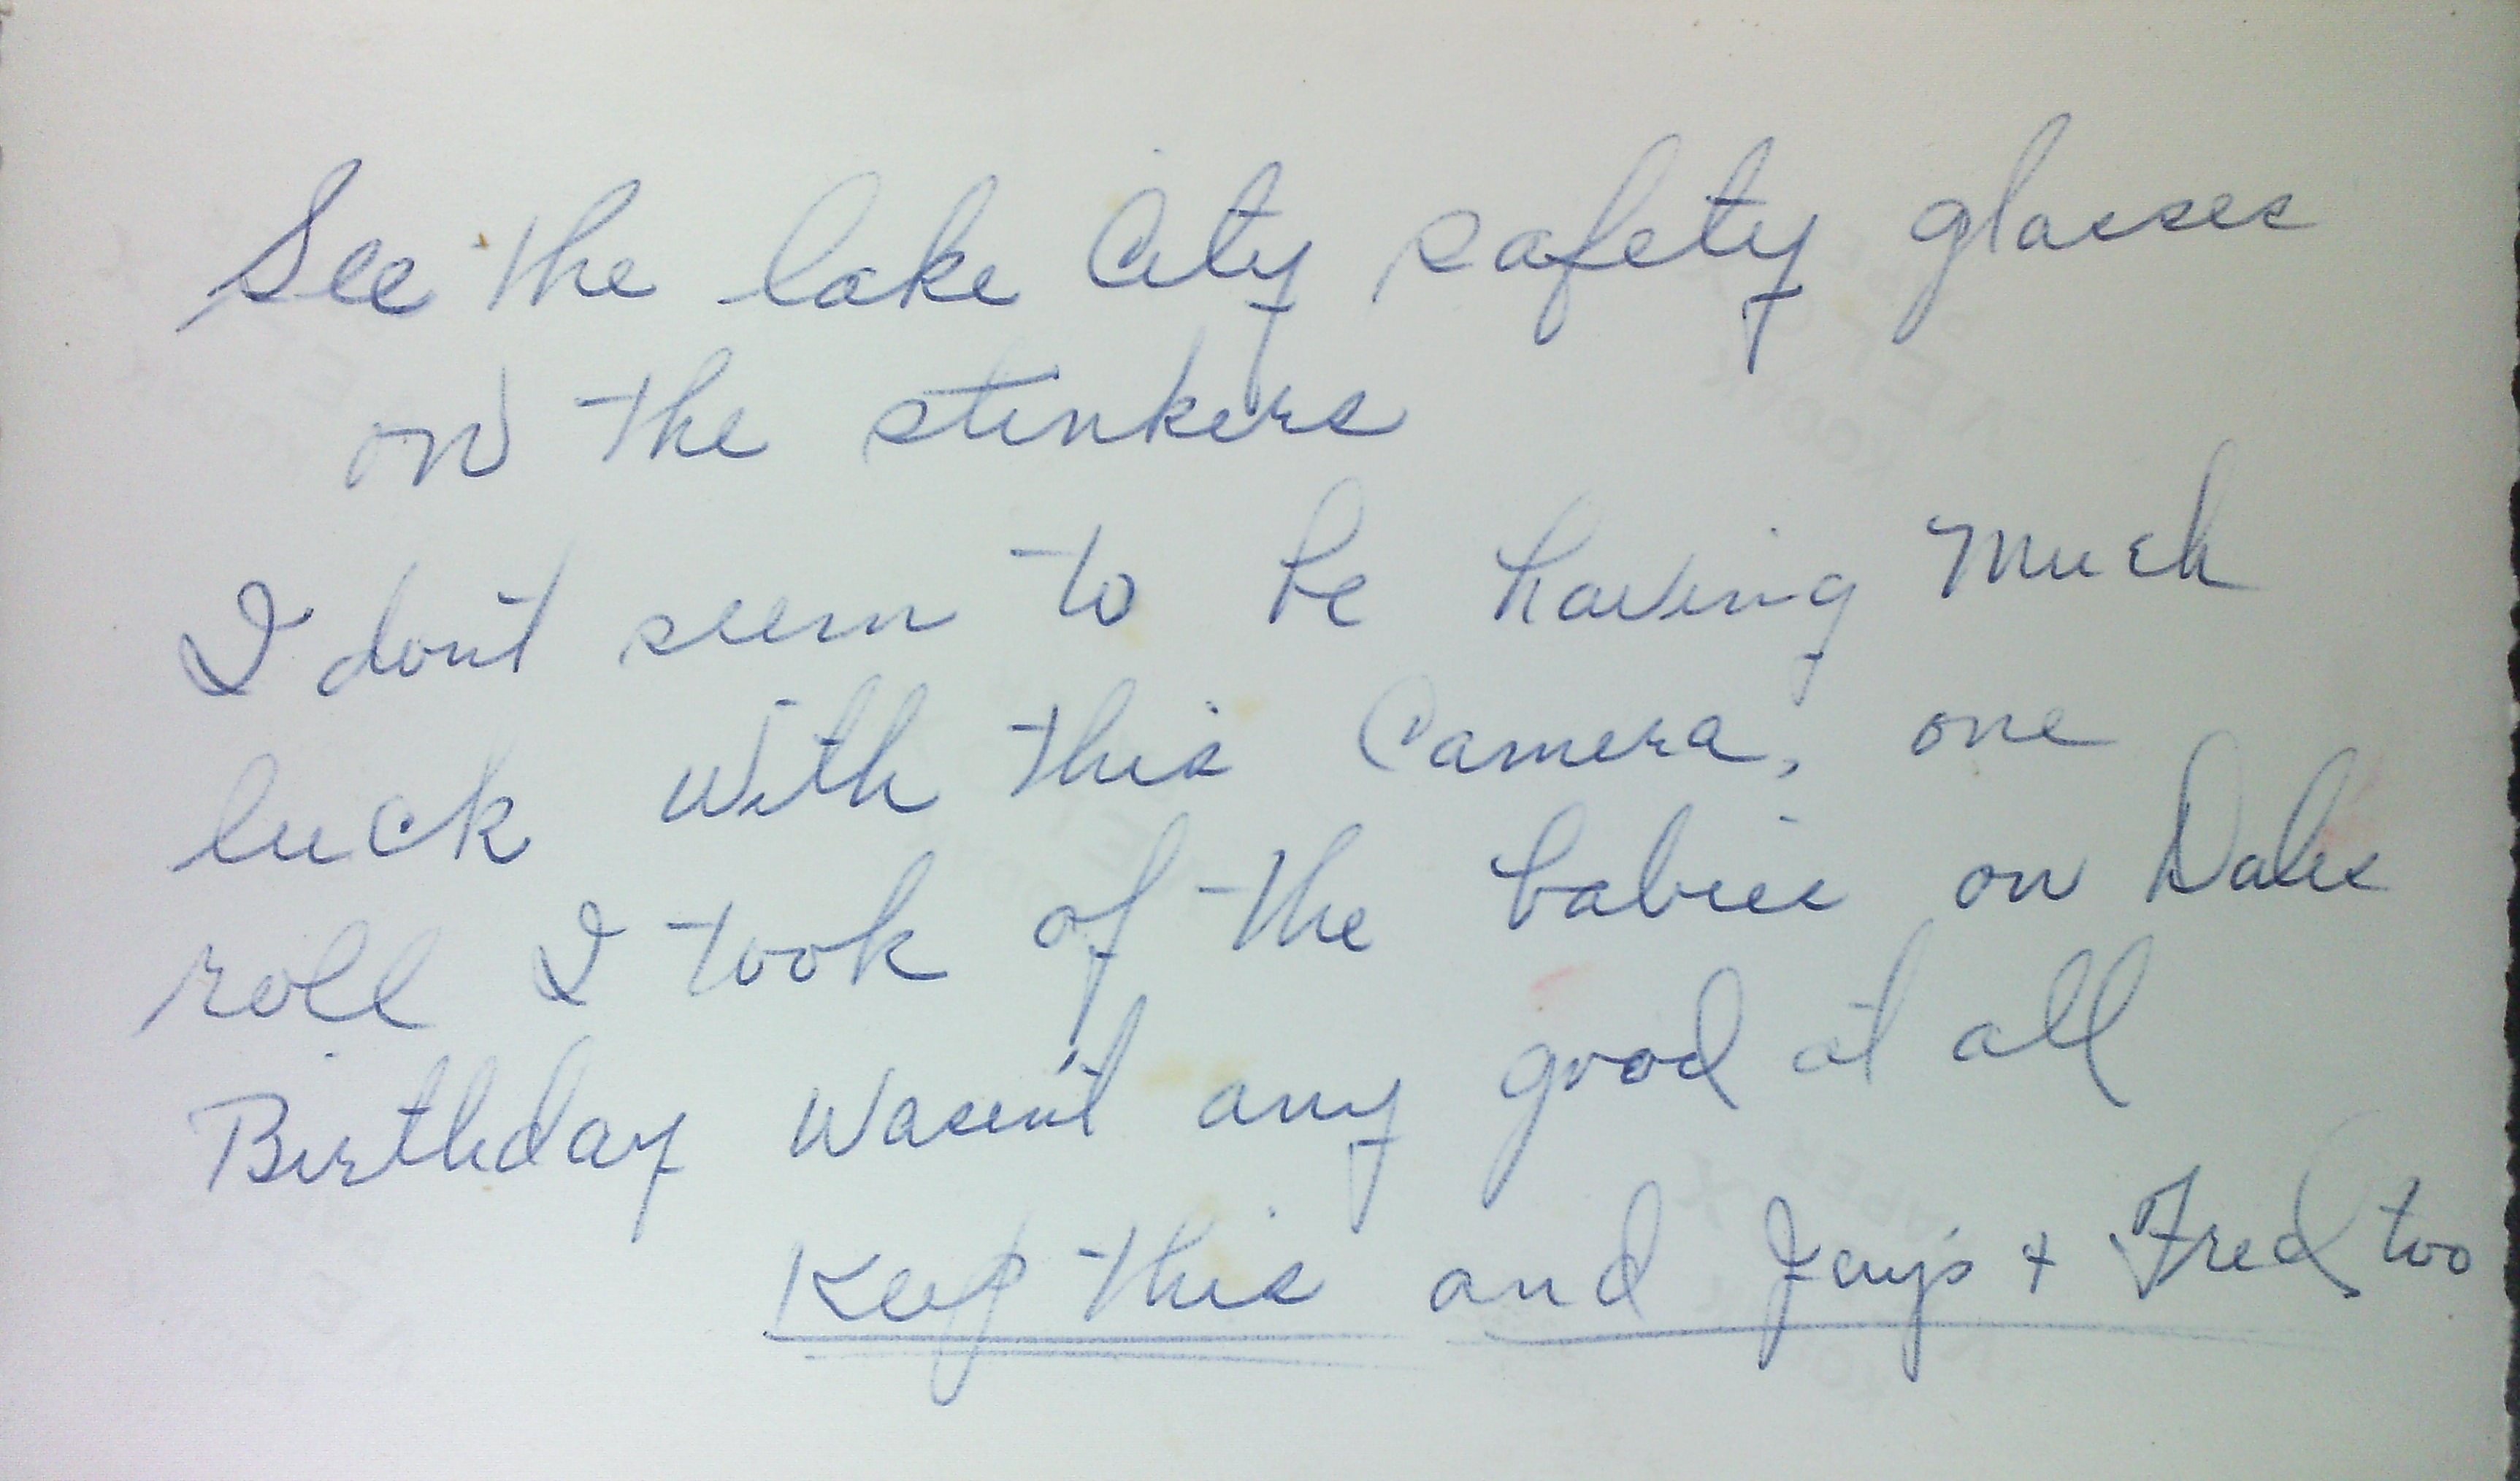 See the lake City safety glasses
on the stinkers
I don't seem to be having much
luck with this Camera, one
roll I took of the babies on Dales
Birthday wasen't any good at all
Keep this and Jay's + Fred too